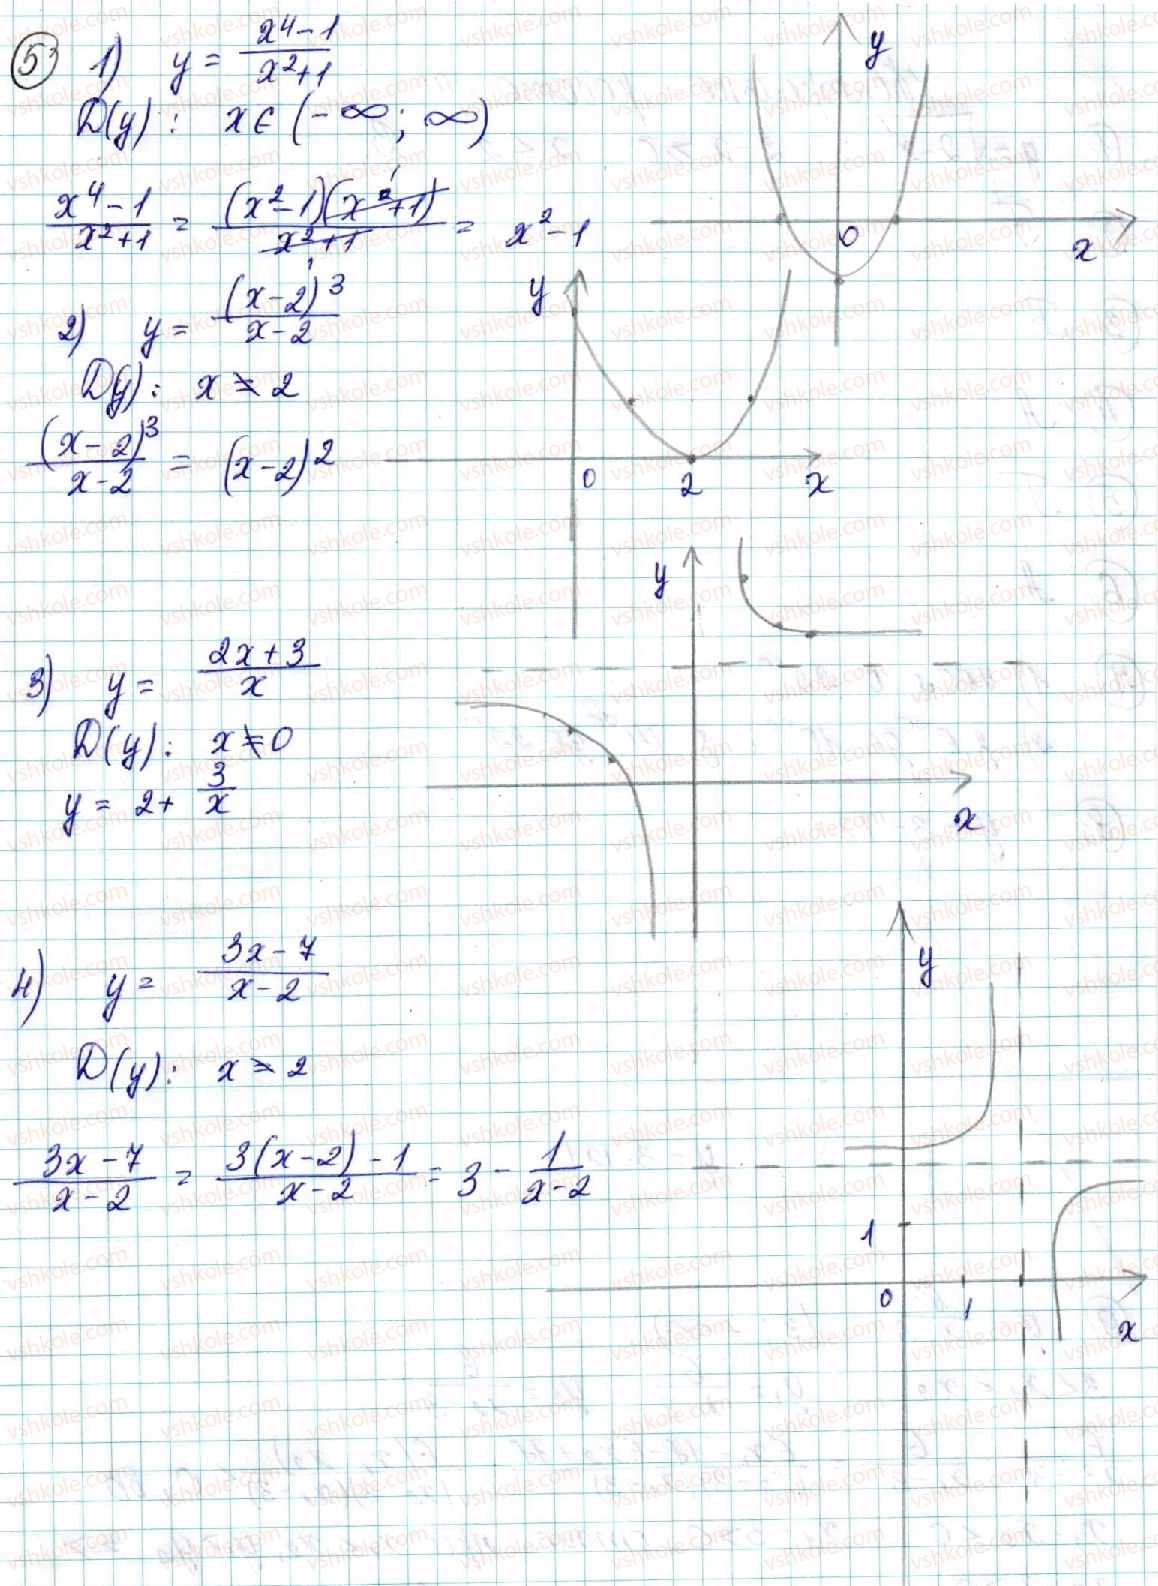 5 1) y = (x⁴-1)/(x²+1)
D(y): x ∈ (-∞; ∞)
(x⁴-1)/(x²+1) = (x²-1)(x²+1)/(x²+1) = x²-1
y
0
x
2) y = (x-2)³/(x-2)
D(y): x ≠ 2
(x-2)³/(x-2) = (x-2)²
y
0 2 x
3) y = (2x+3)/x
D(y): x ≠ 0
y = 2 + 3/x
y
x
4) y = (3x-7)/(x-2)
D(y): x ≠ 2
(3x-7)/(x-2) = (3(x-2)-1)/(x-2) = 3 - 1/(x-2)
y
1
0 1 x
vshkole.com